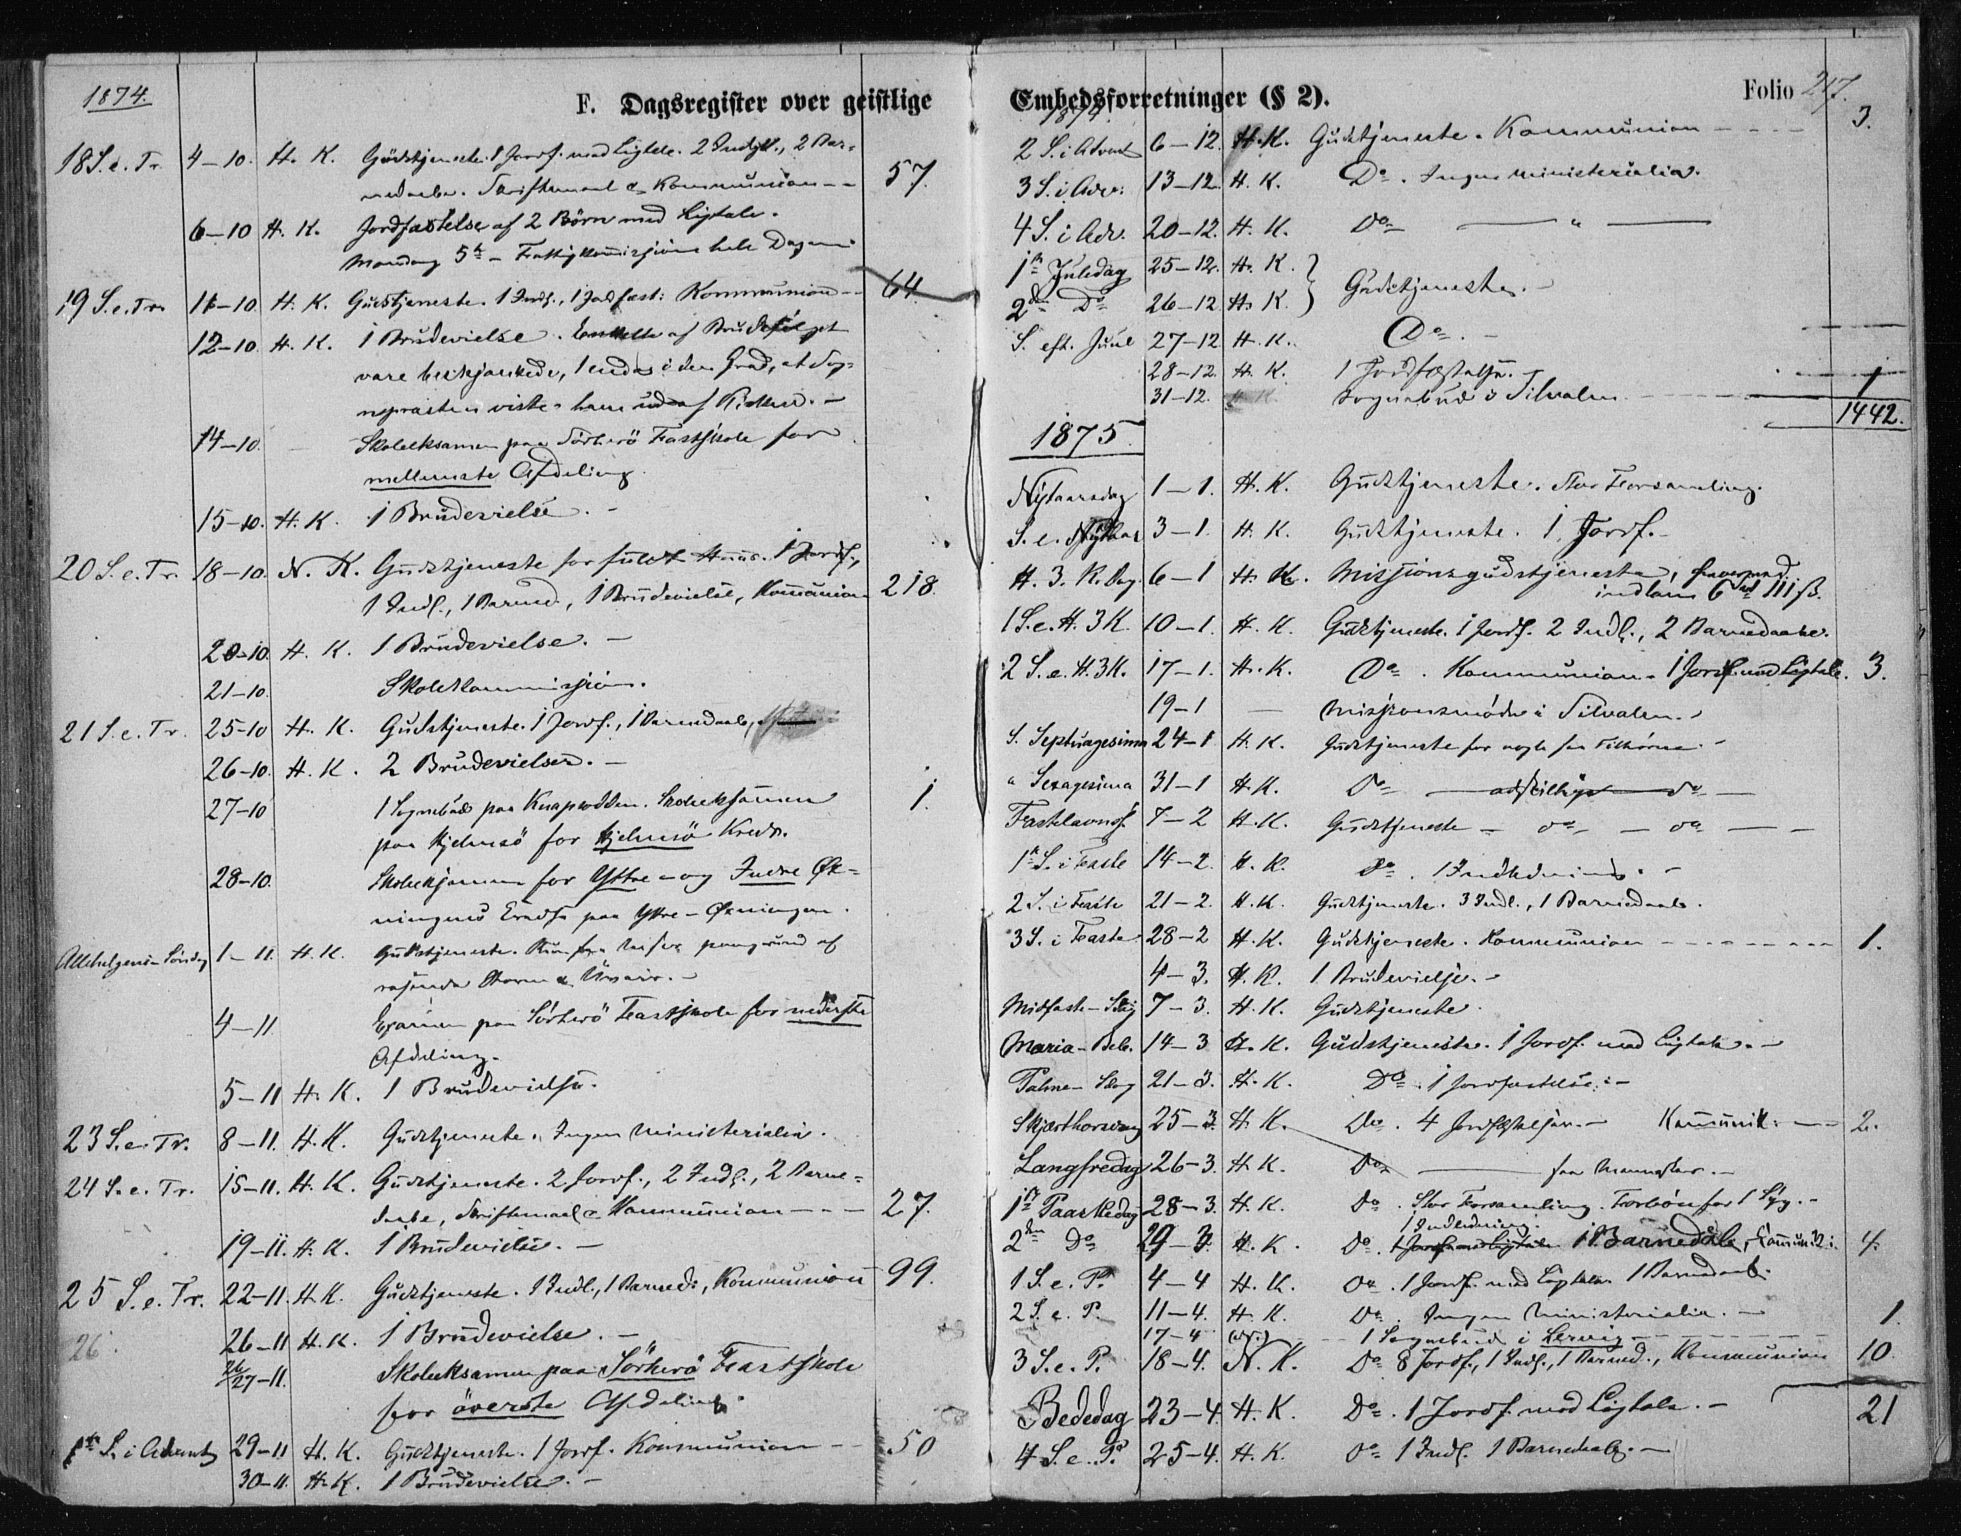 1874.
F. Dagsregister over geistlige
18 S. e. Tr. 4–10. H. K. Gudstjeneste. 1 Jordf. med Ligtale. 2 Indl., 2 Bar-
nedaabe. Skriftemaal & Kommunion – – 57.
6–10 H. K. Jordfæstelse af 2 Børn med Ligtale.
Mandag 5te – Fattigkommission hele Dagen
19 S. e. Tr. 11–10. H. K. Gudstjeneste. 1 Indl., 1 Jordfæst: Kommunion – – 64.
12–10. H. K. 1 Brudevielse. Enkelte af Brudefølget
vare beskjænkede, 1 endog i den Grad, at Sog-
nepræsten viste ham ud af Kirken. –
14–10. Skoleeksamen paa Sörherö Fastskole for
mellemste Afdeling.
15–10. H. K. 1 Brudevielse. –
20 S. e. Tr. 18–10. N. K. Gudstjeneste for fuldt Huus. 1 Jordf.,
1 Indl., 1 Barned., 1 Brudevielse, Kommunion 218.
20–10. H. K. 1 Brudevielse. –
21–10. Skolekommission.
21 S. e. Tr. 25–10 H. K. Gudstjeneste. 1 Jordf., 1 Barnedaab,
26–10. H. K. 2 Brudevielser. –
27–10 1 Sognebud paa . Skoleeksamen 1.
paa Hjelmsö for Hjelmsö Kreds.
28–10. Skoleeksamen for Yttre- og Indre Øx-
ningens Kreds paa Yttre-Øxningen.
Allehelgens-Søndag 1–11. H. K. Gudstjeneste. Kun faa paagrund af
rasende Storm & Uveir. –
4–11 Examen paa Sörherö Fastskole for nederste
Afdeling.
5–11 H. K. 1 Brudevielse.
23 S. e. Tr. 8–11. H. K. Gudstjeneste. Ingen Ministerialia.
24 S. e. Tr. 15–11. H. K. Gudstjeneste. 2 Jordf., 2 Indl., 2 Barne-
daabe, Skriftemaal & Kommunion – – – 27.
19–11. H. K. 1 Brudevielse. –
25 S. e. Tr. 22–11. H. K. Gudstjeneste. 1 Indl., 1 Barned:, Kommunion 99.
26. 26–11 H. K. 1 Brudevielse. –
26/27–11. Skoleeksamen paa Sörherö Fastskole
for överste Afdeling.
1ste S. i Advent 29–11 H. K. Gudstjeneste. 1 Jordf. Kommunion – – 50
30–11. H. K. 1 Brudevielse. –
Embedsforretninger (§ 2).
Folio 247.
1874.
2 S. i Advent 6–12. H. K. Gudstjeneste. Kommunion – – – – 3.
3 S. i Adv: 13–12. H. K. Do. Ingen Ministerialia.
4 S. i Adv. 20–12. H. K. Do – " –
1ste Juledag 25–12. H. K.
Gudstjeneste. –
2den Do 26–12 H. K.
S. eft. Juul 27–12 H. K. Do. –
28–12. H. K. 1 Jordfæstelse.
31–12. H. K. Sognebud i Silvalen – – – – 1
1442.
1875.
Nytaarsdag 1–1. H. K. Gudstjeneste. Stor Forsamling.
S. e. Nytaar 3–1. H. K. Gudstjeneste. 1 Jordf. –
H. 3. K. Dag. 6–1 H. K. Missionsgudstjeneste,
indkom 6 Spd 111 ß.
1 S. e. H. 3 K. 10–1. H. K. Gudstjeneste. 1 Jordf. 2 Indl., 2 Barnedaabe.
2 S. e. H. 3 K. 17–1. H. K. Do. Kommunion. 1 Jordf. med Ligtale. 3.
19–1 – Missionsmöde i Silvalen. –
S. Septuagesima 24–1 H. K. Gudstjeneste for nogle faa Tilhörere. –
" Sexagesima 31–1 H. K. Do – adskillige – do –
Fastelavnsd. 7–2 H. K. Gudstjeneste – do – – do – –
1ste S. i Faste 14–2. H. K. Do. 1 Indledning. –
2 S. i Faste 21–2. H. K. Gudstjeneste. 3 Indl., 1 Barnedaab.
3 S. i Faste 28–2 H. K. Gudstjeneste. Kommunion – – – – – – 1.
4–3. H. K. 1 Brudevielse. –
Midfaste-Sdg 7–3. H. K. Gudstjeneste.
Maria-Beb. 14–3 H. K. Gudstjeneste. 1 Jordf. med Ligtale. –
Palme-Sdg 21–3. H. K. Do. 1 Jordfæstelse. –
Skjærthorsdag 25–3. H. K. Do. 4 Jordfæstelser. – Kommunik: – – 2.
Langfredag 26–3. H. K. Do – faa Mennesker. –
1ste Paaskedag 28–3. H. K. Do. Stor Forsamling. Forbön for 1 Syg. –
1 Indledning.
2den Do 29–3. H. K. Do. 1 Jordf. med Ligtale 1 Barnedaab, Kommunik: 4.
1 S. e. P. 4–4 H. K. Do. 1 Jordf. med Ligtale. 1 Barnedaab.
2 S. e. P. 11–4. H. K. Do. Ingen Ministerialia. –
17–4 – – 1 Sognebud i Lervig – – – – – 1.
3 S. e. P. 18–4. N. K. Do 8 Jordf., 1 Indl., 1 Barned., Kommunion 10.
Bededag 23–4. H. K. Do. 1 Jordf. med Ligtale. – 21
4 S. e. P. 25–4. H. K. Do 1 Indl. 1 Barnedaab. –